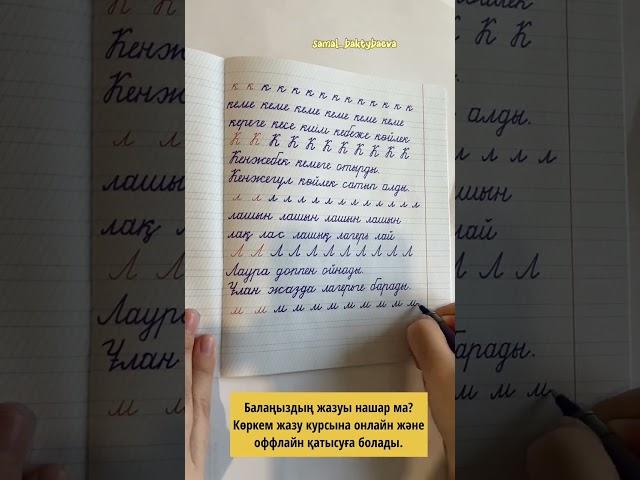 samal_baktybaeva
к к к к к к к к к к к к к
кеме кеме кеме кеме кеме кеме
кереге кесе киім кебеже көйлек
К К К К К К К К К К
Кенжебек кемеге отырды.
Кенжегүл көйлек сатып алды.
л л л л л л л л л л л л л л
лашын лашын лашын лашын
лақ лас лашық лагерь лай
Л Л Л Л Л Л Л Л Л Л
Лаура доппен ойнады.
Ұлан жазда лагерьге барады.
м м м м м м м м м м
Балаңыздың жазуы нашар ма?
Көркем жазу курсына онлайн және
оффлайн қатысуға болады.